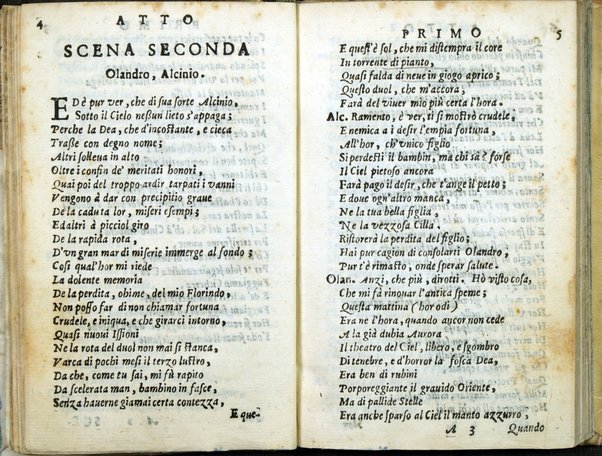 4
ATTO
SCENA SECONDA
Olandro, Alcinio.
E Dè pur ver, che di sua sorte Alcinio,
Sotto il Cielo neßun lieto s'appaga;
Perche la Dea, che d'incostante, e cieca
Traſſe con degno nome;
Altri ſolleua in alto
Oltre i confin de' meritati honori,
Quai poi del troppo ardir tarpati i vanni
Vengono à dar con precipitio graue
De la caduta lor, miseri eſempi;
Ed altri à picciol giro
De la rapida rota,
D'vn gran mar di miserie immerge al fondo;
Così qual'hor mi riede
La dolente memoria
De la perdita, ohime, del mio Florindo,
Non poſſo far di non chiamar fortuna
Crudele, e iniqua, e che girarci intorno,
Quasi nuoui Iſſioni
Ne la rota del duol non mai si stanca,
Varca di pochi mesi il terzo lustro,
Da che, come tu ſai, mi fù rapito
Da scelerata man, bambino in faſce,
Senza hauerne giamai certa contezza,
E que-
PRIMO
5
E quest'è sol, che mi distempra il core
In torrente di pianto,
Quaſi falda di neue in giogo aprico;
Questo duol, che m'accora;
Farà del viuer mio più certa l'hora.
Alc. Ramento, è ver, ti si mostrò crudele,
E nemica a i desir l'empia fortuna,
All'hor, ch'vnico figlio
Si perdesti il bambin, ma chi sà? forſe
Il Ciel pietoso ancora
Farà pago il desir, che t'ange il petto;
E doue ogn'altro manca,
Ne la tua bella figlia
Ne la vezzoſa Cilla.
Ristorerà la perdita del figlio;
Hai pur cagion di consolarti Olandro,
Pur t'è rimasto, onde sperar salute.
Olan. Anzi, che più, dirotti. Hò visto coſa,
Che mi fà rinouar l'antica speme;
Questa mattina (hor odi)
Era ne l'hora, quando ancor non cede
A la già dubia Aurora
Il theatro del Ciel, libero, e sgombro
Di tenebre, e d'horror la foſca Dea,
Era ben di rubini
Porporeggiante il grauido Oriente,
Ma di pallide Stelle
Era anche sparso al Ciel il manto azzurro,
A 3
Quando